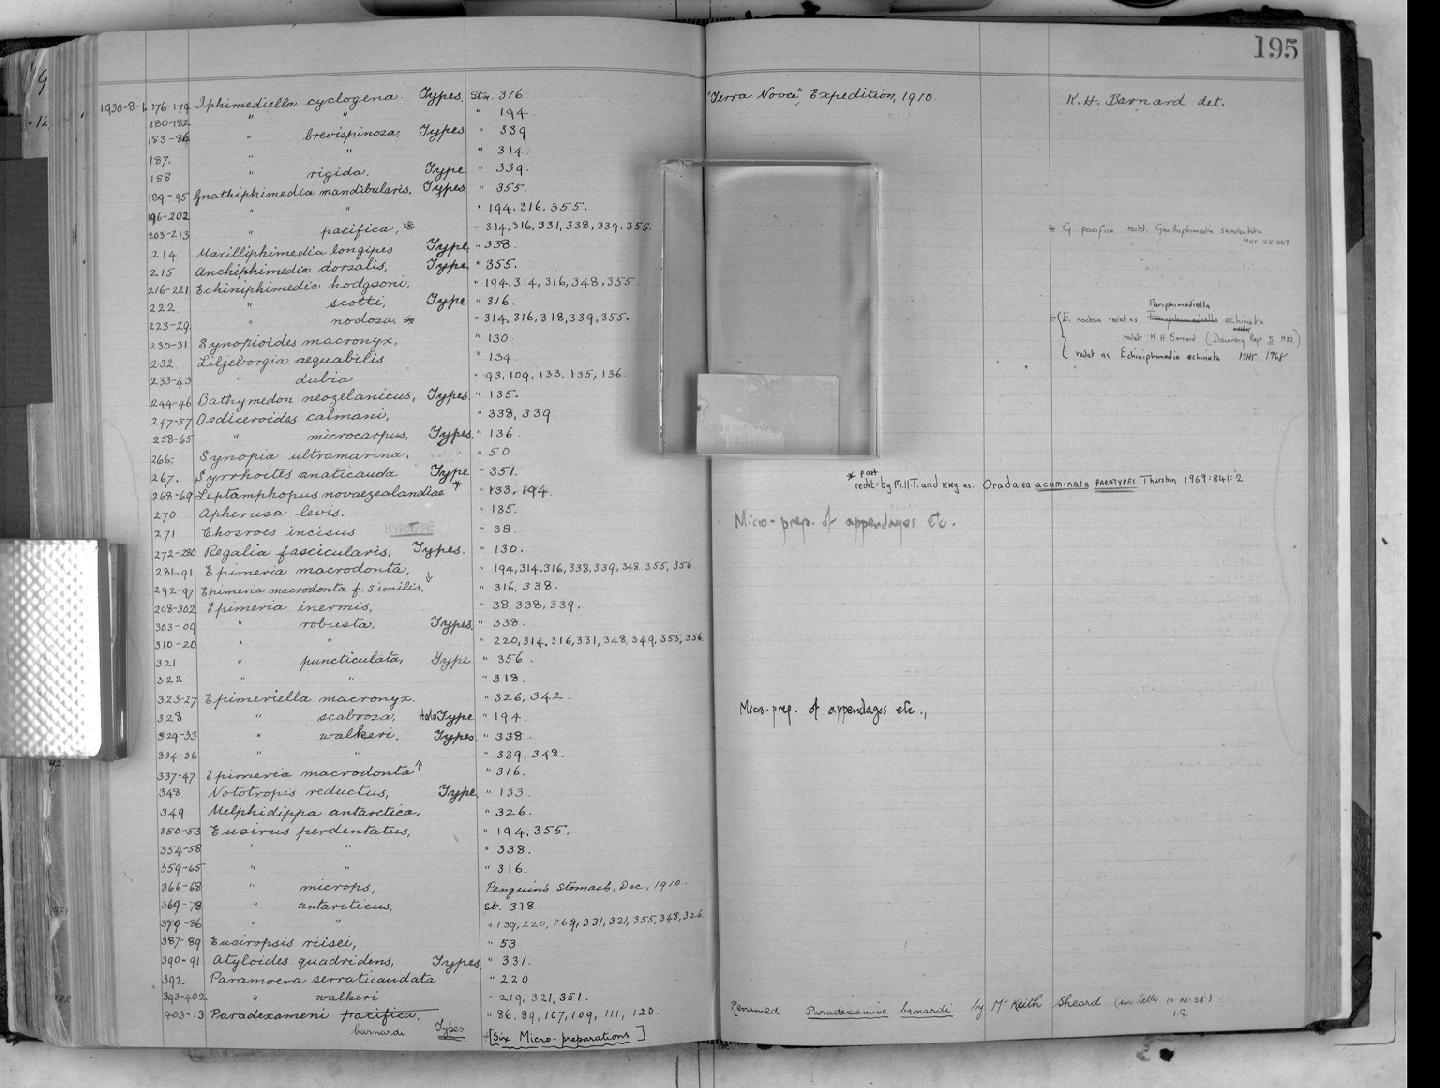 195
1930-8-1. 176-179 Iphimediella cyclogena. Types. Stn. 316 "Terra Nova", Expedition, 1910. K.H. Barnard det.
180-182 " " " 194.
183-86 " brevispinosa, Types " 339
187. " " " 314.
188 " rigida, Type " 339.
189-95 Gnathiphimedia mandibularis, Types " 355.
196-202 " " " 194, 316, 355.
203-213 " pacifica, * " 314, 316, 331, 338, 339, 355. * G. pacifica redet. Gnathiphimedia
214 Maxilliphimedia longipes Type " 338.
215 Anchiphimedia dorsalis, Type " 355.
216-221 Echiniphimedia hodgsoni, " 194, 314, 316, 348, 355.
222 " scotti, Type " 316.
Pariphimediella
223-29 " nodosa, * " 314, 316, 318, 339, 355. * E. nodosa redet as echinata
redet K.H Barnard (Discovery Rep 5 1932)
230-31 Synopioides macronyx, " 130
redet as Echiniphimedia echinata MHT 1968
232 Liljeborgia aequabilis " 134.
233-43 " dubia " 93, 109, 133, 135, 136.
244-46 Bathymedon neozelanicus, Types " 135.
247-57 Oediceroides calmani, " 338, 339.
258-65 " microcarpus, Types. " 136.
266. Synopia ultramarina, " 50
267. Syrrhoites anaticauda Type " 351.
268-69 Leptamphopus novaezealandiae * " 133, 194.
* part
redet. by M.H.T. and reg as. Oradarea acuminata PARATYPES Thurston 1969:841:2
270 Apherusa levis. " 135.
271 Chosroes incisus HYPOTYPE " 38. Micro-prep. of appendages etc.
272-280 Regalia fascicularis, Types. " 130.
281-91 Epimeria macrodonta, " 194, 314, 316, 338, 339, 348, 355, 356
292-97 Epimeria macrodonta f. similis. " 316, 338.
298-302 Epimeria inermis, " 38, 338, 339.
303-09 " robusta, Types. " 338.
310-20 " " " 220, 314, 316, 331, 348, 349, 355, 356.
321 " puncticulata, Type " 356.
322 " " " 318.
323-27 Epimeriella macronyx. " 326, 342.
328 " scabrosa, holoType " 194. Micro-prep. of appendages etc.,
329-33 " walkeri, Types. " 338
334-36 " " " 339, 348.
337-47 Epimeria macrodonta ↑ " 316.
348 Nototropis reductus, Type. " 133.
349 Melphidippa antarctica, " 326.
350-53 Eusirus perdentatus, " 194, 355.
354-58 " " " 338.
359-65 " " " 316.
366-68 " microps, Penguin's Stomach, Dec, 1910.
369-78 " antarcticus, St. 318
379-86 " " " 139, 220, 269, 331, 321, 355, 348, 326.
387-89 Eusiropsis riisei, " 53
390-91 Atyloides quadridens, Types. " 331.
392 Paramoera serraticaudata " 220
393-402 " walkeri " 219, 321, 351.
403-13 Paradexamine pacifica, " 86, 89, 107, 109, 111, 120. Renamed Paradexamine barnardi by Mr Keith Sheard
barnardi Types [Six Micro-preparations]